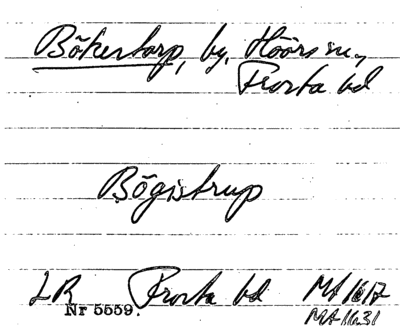 Bökestorp, by, Höörs sn.,
Frosta hd
Bögistrup
LR Frosta hd MA 1617
Nr 5559. MA 1631